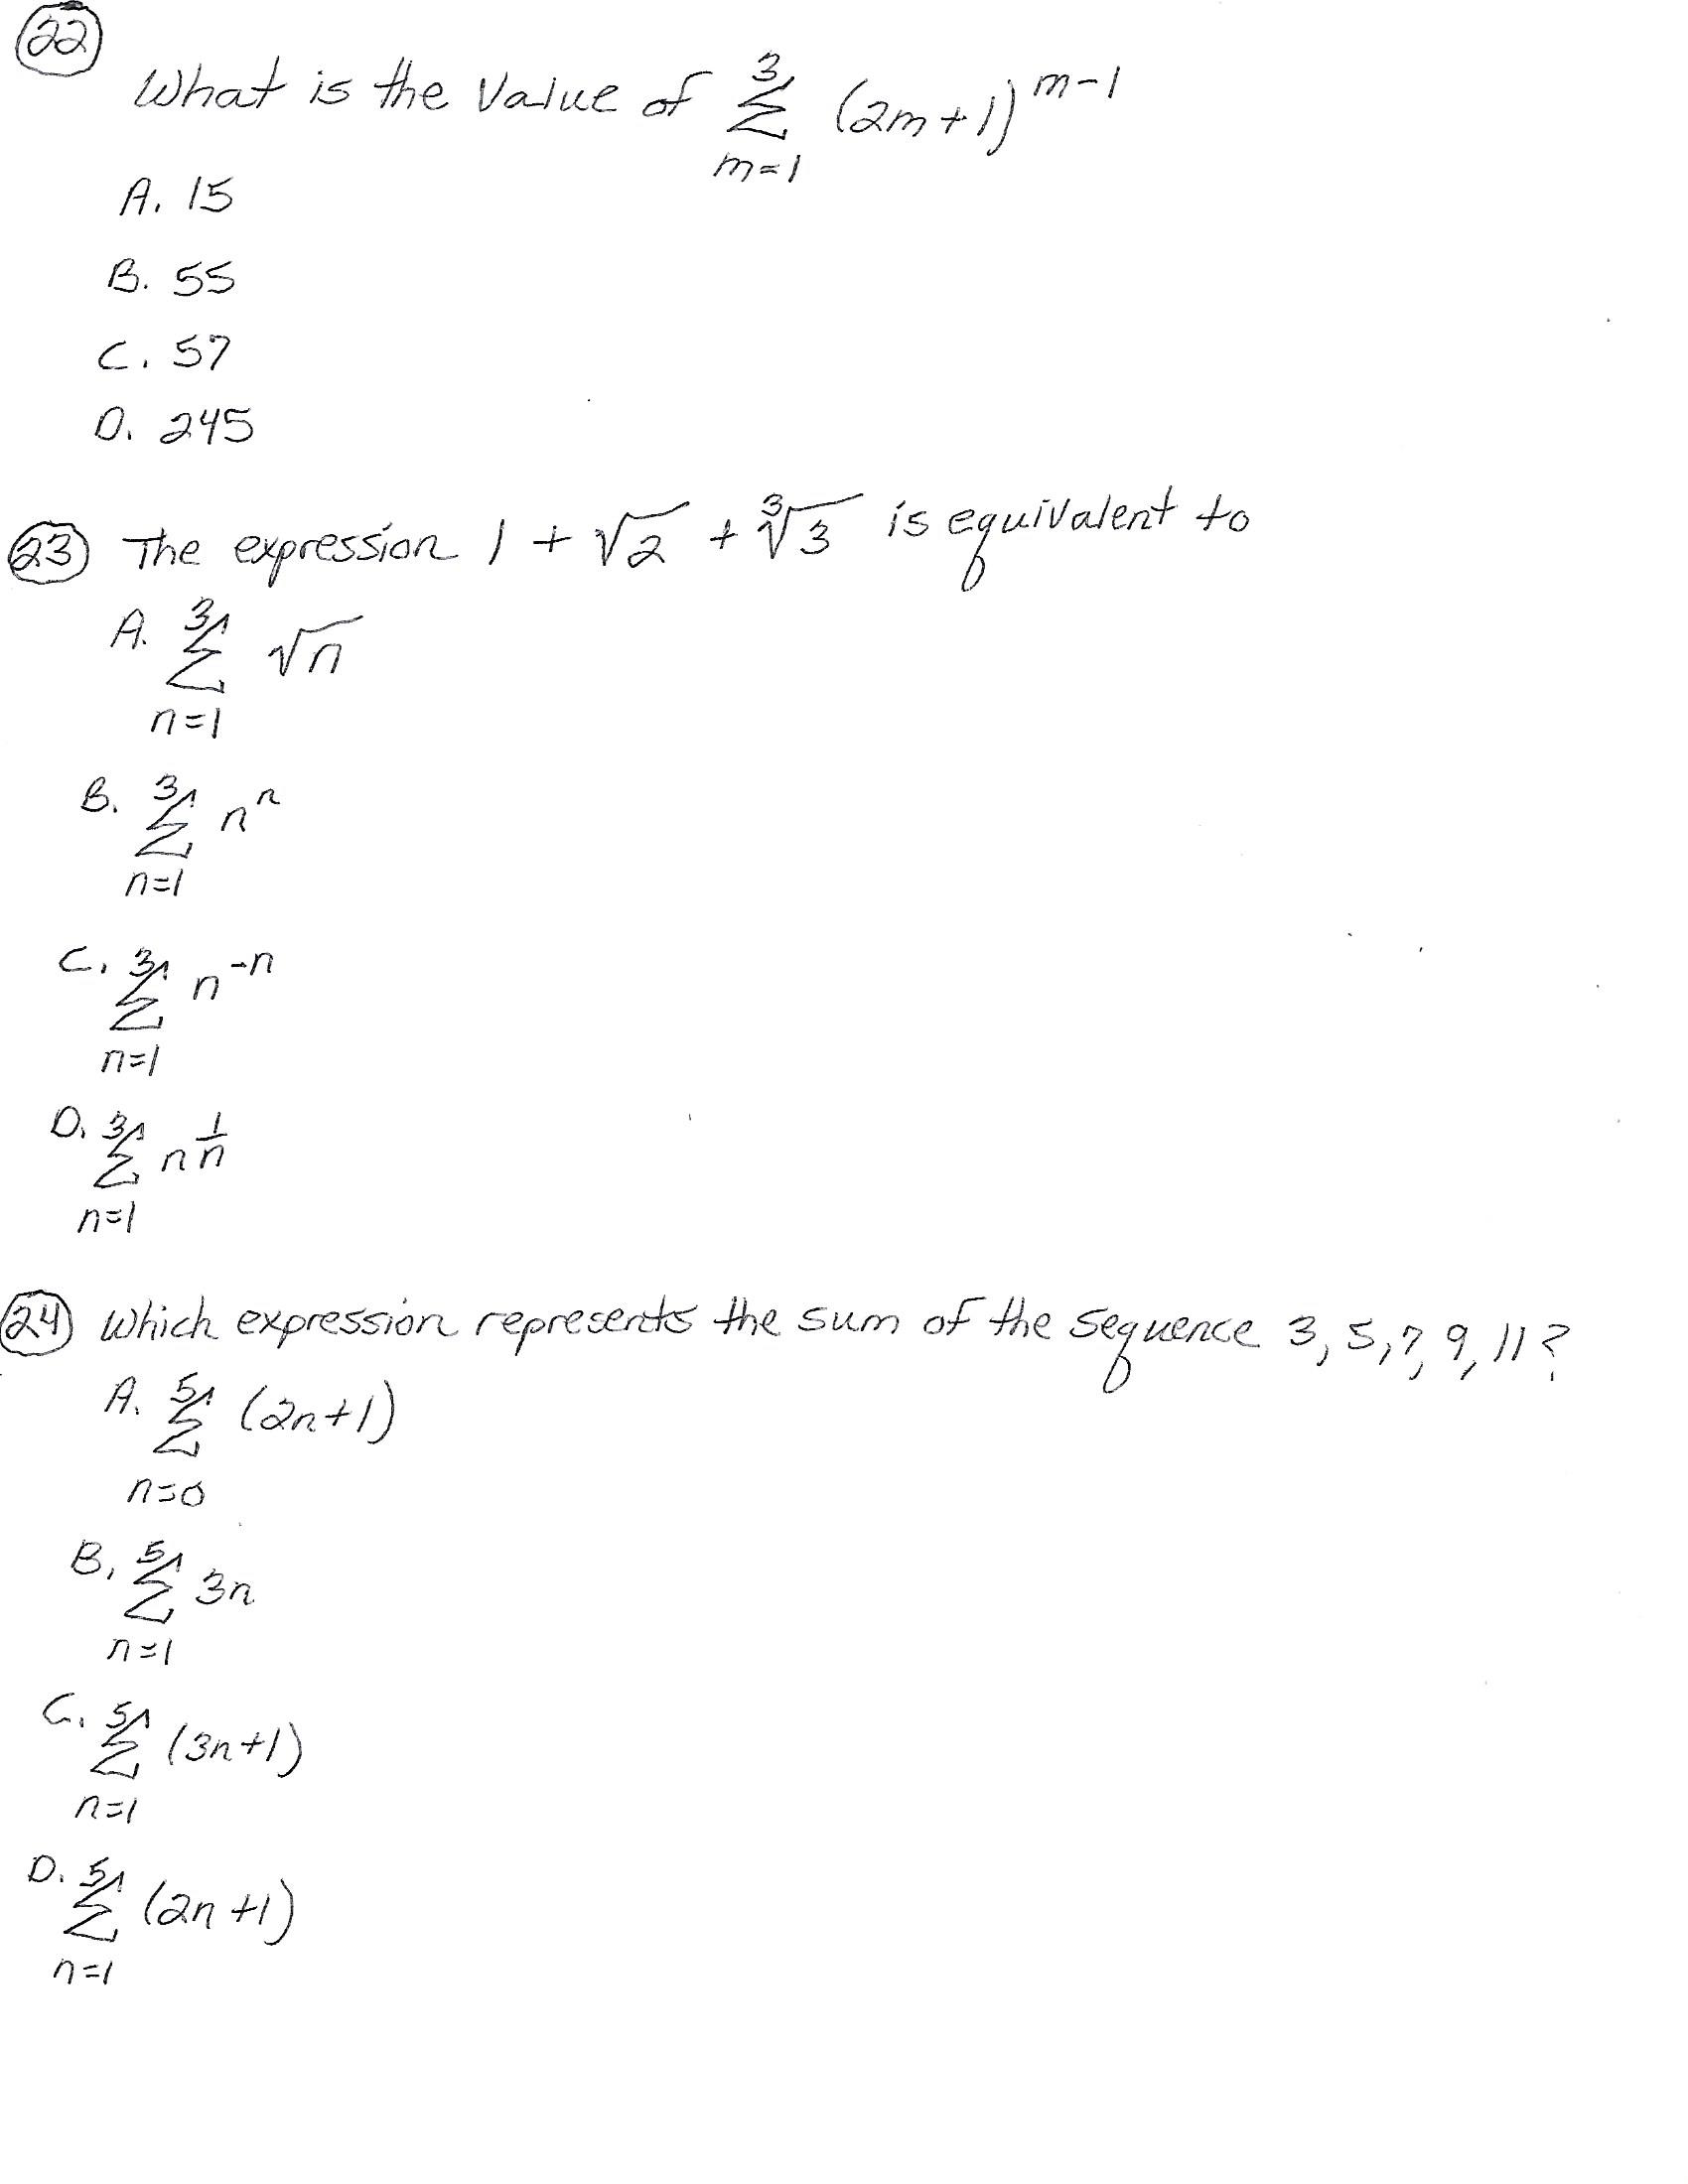 22
What is the value of 3∑m=1 (2m+1)^m-1
A. 15
B. 55
C. 57
D. 245
23 The expression 1 + √2 + ∛3 is equivalent to
A. 3∑n=1 √n
B. 3∑n=1 n^n
C. 3∑n=1 n^-n
D. 3∑n=1 n^1/n
24 Which expression represents the sum of the sequence 3, 5, 7, 9, 11?
A. 5∑n=0 (2n+1)
B. 5∑n=1 3n
C. 5∑n=1 (3n+1)
D. 5∑n=1 (2n+1)